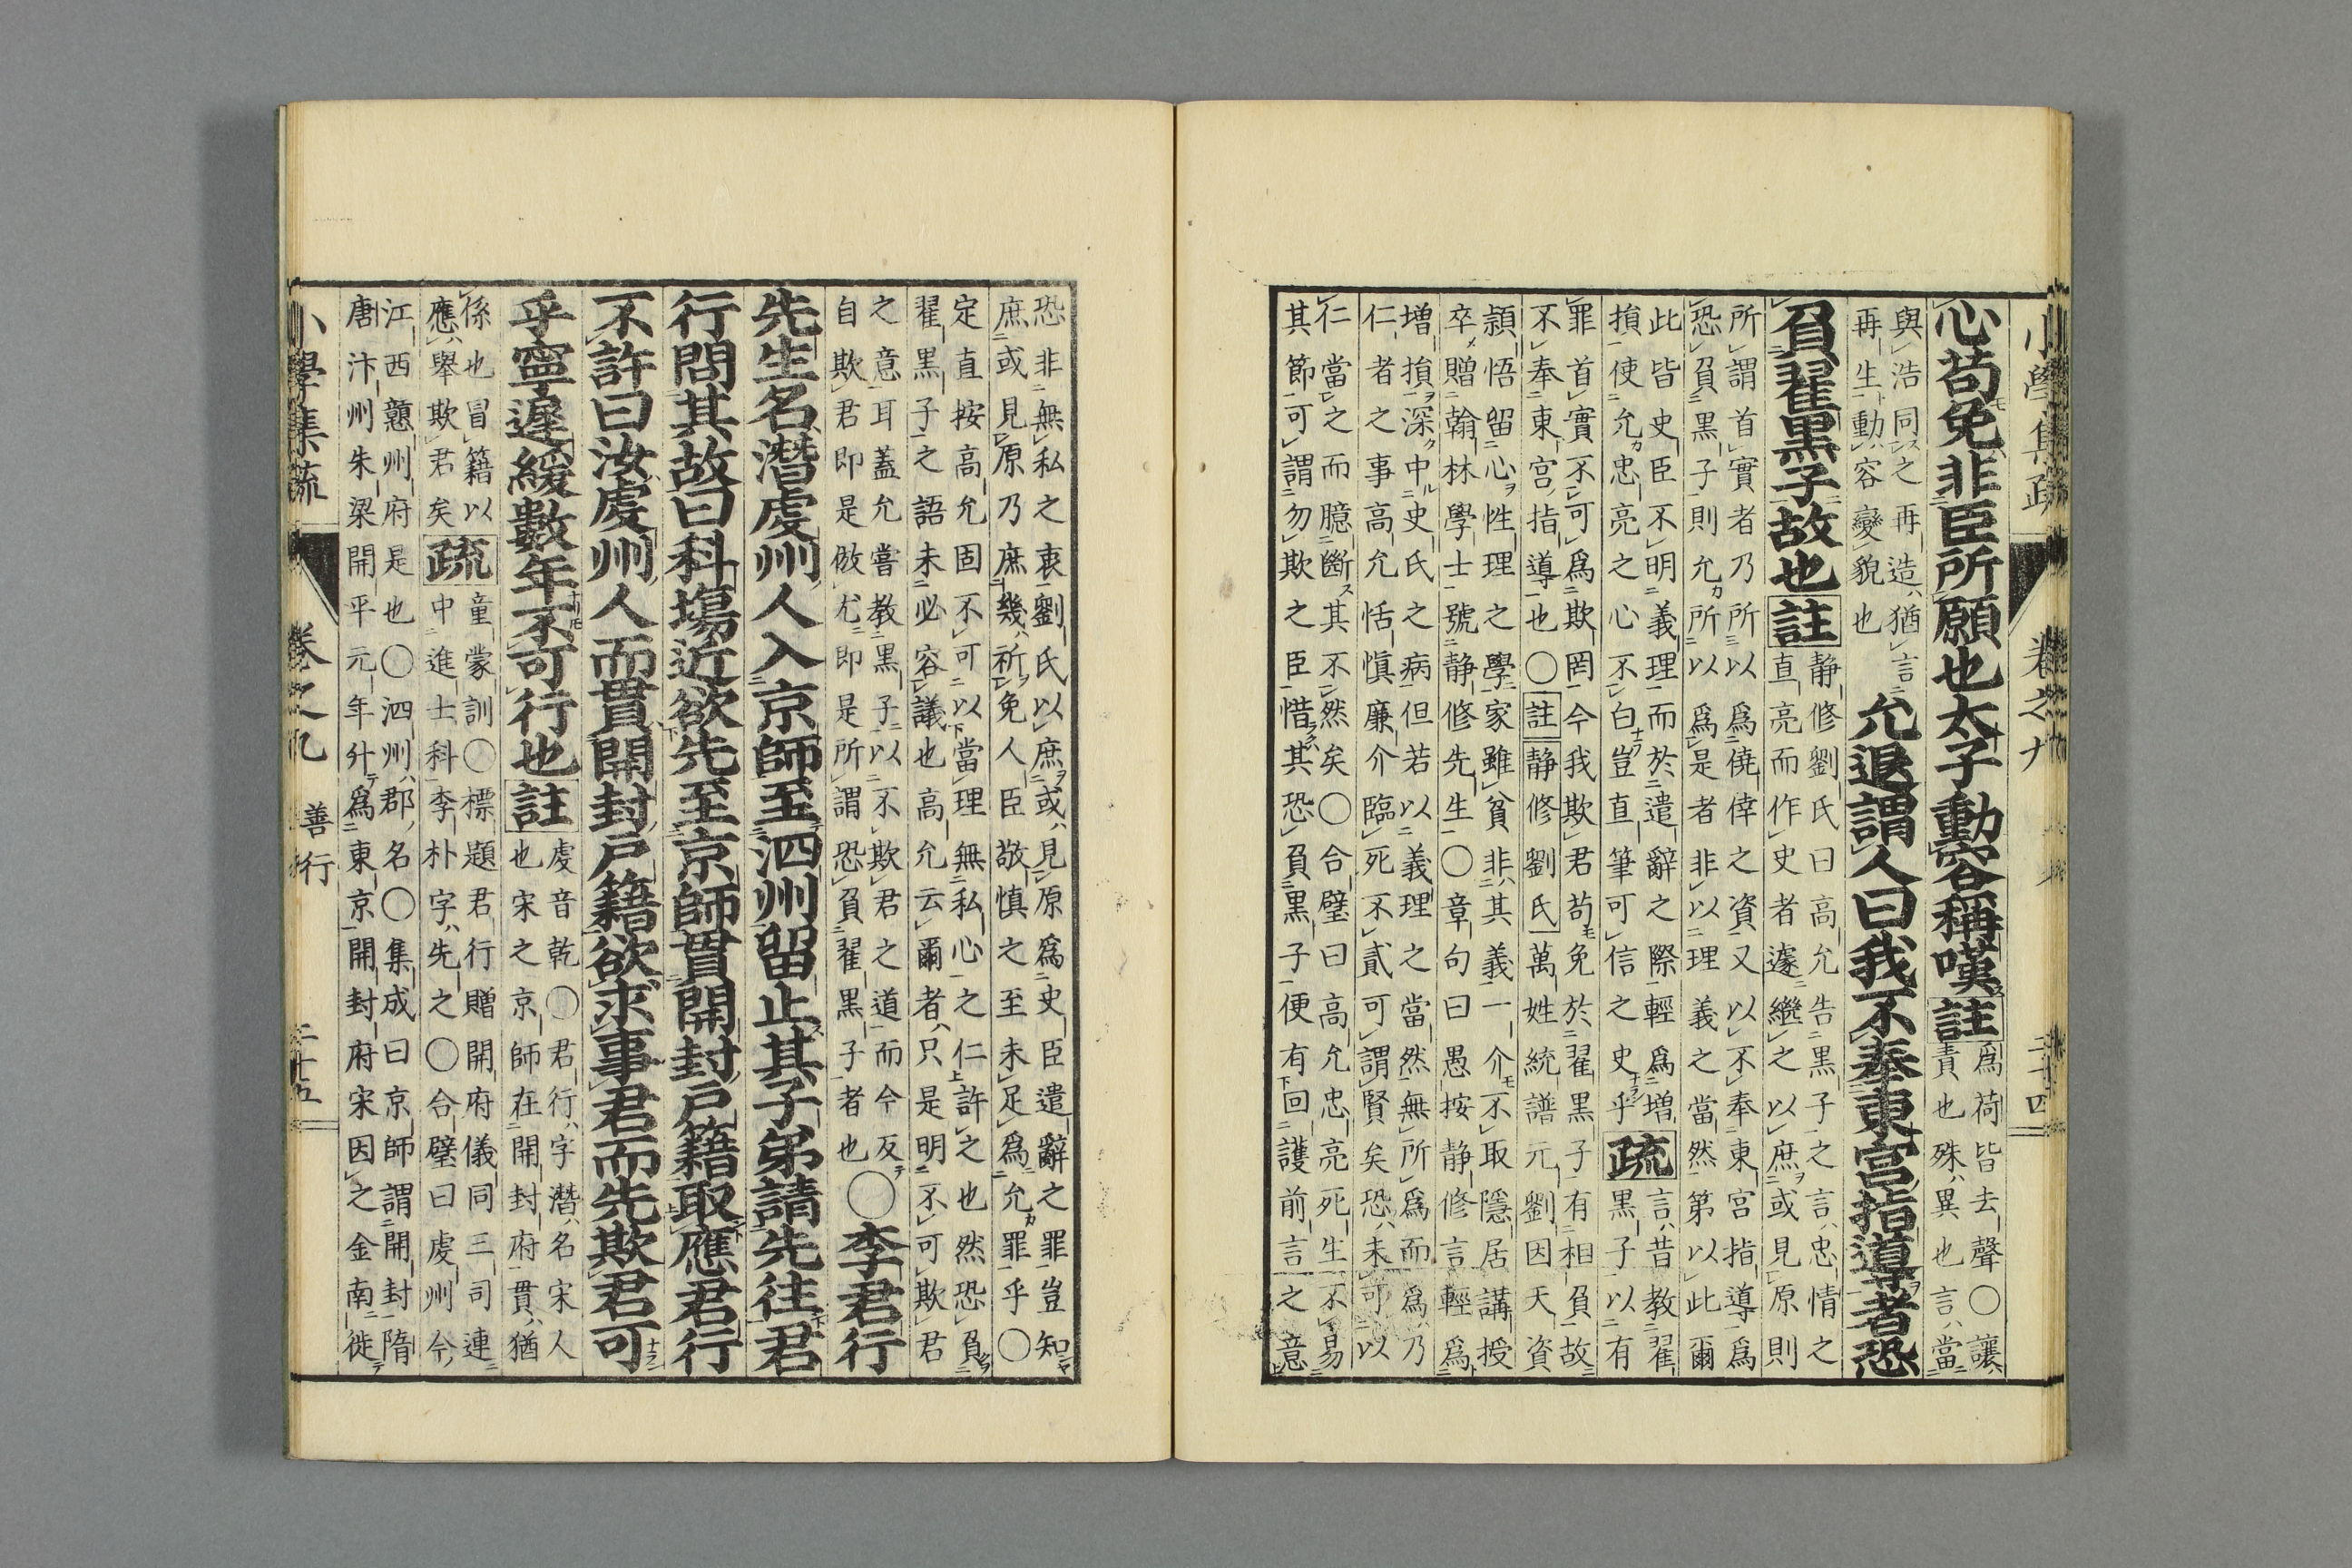 小學集疏　卷之九　二十四
心苟免非臣所願也太子動容稱嘆註爲荷皆去聲〇讓
責也殊異也言當
與浩同之再造猶言
再生動容變貌也
允退謂人曰我不奉東宮指導者恐
負翟黑子故也註靜修劉氏曰高允告黑子之言忠情之
直亮而作史者遽繼之以庶或見原則
所謂首實者乃所以爲僥倖之資又以不奉東宮指導爲
恐負黑子則允所以爲是者非以理義之當然第以此爾
此皆史臣不明義理而於遣辭之際輕爲增
損使允忠亮之心不白豈直筆可信之史乎疏言昔教翟
黑子以有
罪首實不可爲欺罔今我欺君苟免於翟黑子有相負故
不奉東宮指導也〇註靜修劉氏萬姓統譜元劉因天資
穎悟留心性理之學家雖貧非其義一介不取隱居講授
卒贈翰林學士號靜修先生〇章句曰愚按靜修言輕爲
增損深中史氏之病但若以義理之當然無所爲而爲乃
仁者之事高允恬愼廉介臨死不貳可謂賢矣恐未可以
仁當之而臆斷其不然矣〇合璧曰高允忠亮死生不易
其節可謂勿欺之臣惜其恐負黑子便有回護前言之意
恐非無私之衷劉氏以庶或見原爲史臣遣辭之罪豈知
庶或見原乃庶幾祈免人臣敬慎之至未足爲允罪乎〇
定直按高允固不可以當理無私心之仁許之也然恐負
翟黑子之語未必容議也高允云爾者只是明不可欺君
之意耳蓋允嘗教黑子以不欺君之道而今反
自欺君即是傚尤即是所謂恐負翟黑子者也
〇李君行
先生名潛虔州人入京師至泗州留止其子弟請先往君
行問其故曰科塲近欲先至京師貫開封戶籍取應君行
不許曰汝虔州人而貫開封戶籍欲求事君而先欺君可
乎寧遲緩數年不可行也註虔音乾〇君行字潛名宋人
也宋之京師在開封府貫猶
係也冒籍以
應舉欺君矣疏童蒙訓〇標題君行贈開府儀同三司連
中進士科李朴字先之〇合璧曰虔州今
江西贛州府是也〇泗州郡名〇集成曰京師謂開封隋
唐汴州朱梁開平元年升爲東京開封府宋因之金南徙
小學集疏　卷之九　善行　二十五